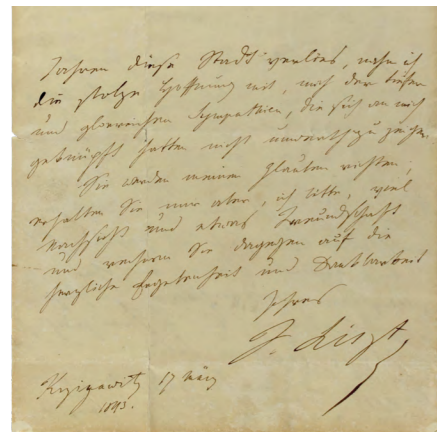 Jahren diese Stadt verliess, nahm ich
die stolze Hoffnung mit, mich der tiefen
und glorreichen Sympathien, die sich an mich
geknüpft hatten nicht unwerth zu zeigen.
Sie werden meinen Glauben richten;
erhalten Sie mir aber, ich bitte, viel
Nachsicht und etwas Freundschaft
und rechnen Sie dagegen auf die
herzliche Ergebenheit und Dankbarkeit
Ihres
F. Liszt
17 März
1843.